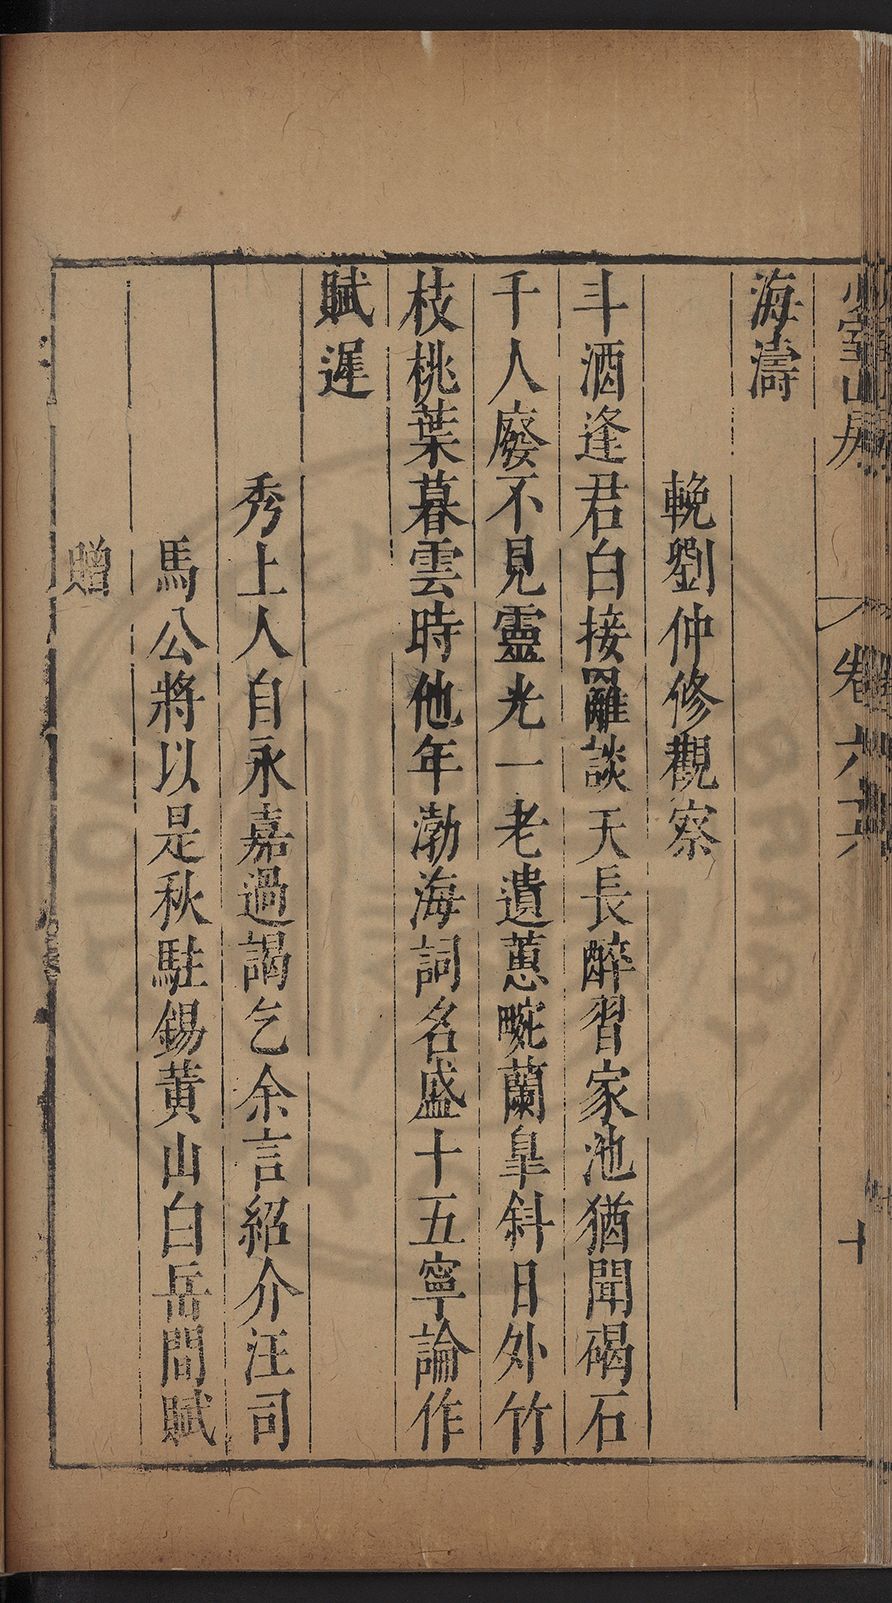 少室山房 卷六六 十
海濤
輓劉仲修觀察
斗酒逢君白接䍦談天長醉習家池猶聞碣石
千人廢不見靈光一老遺蕙畹蘭皐斜日外竹
枝桃葉暮雲時他年渤海詞名盛十五寧論作
賦遲
秀上人自永嘉過謁乞余言紹介汪司
馬公將以是秋駐錫黃山白岳間賦
贈